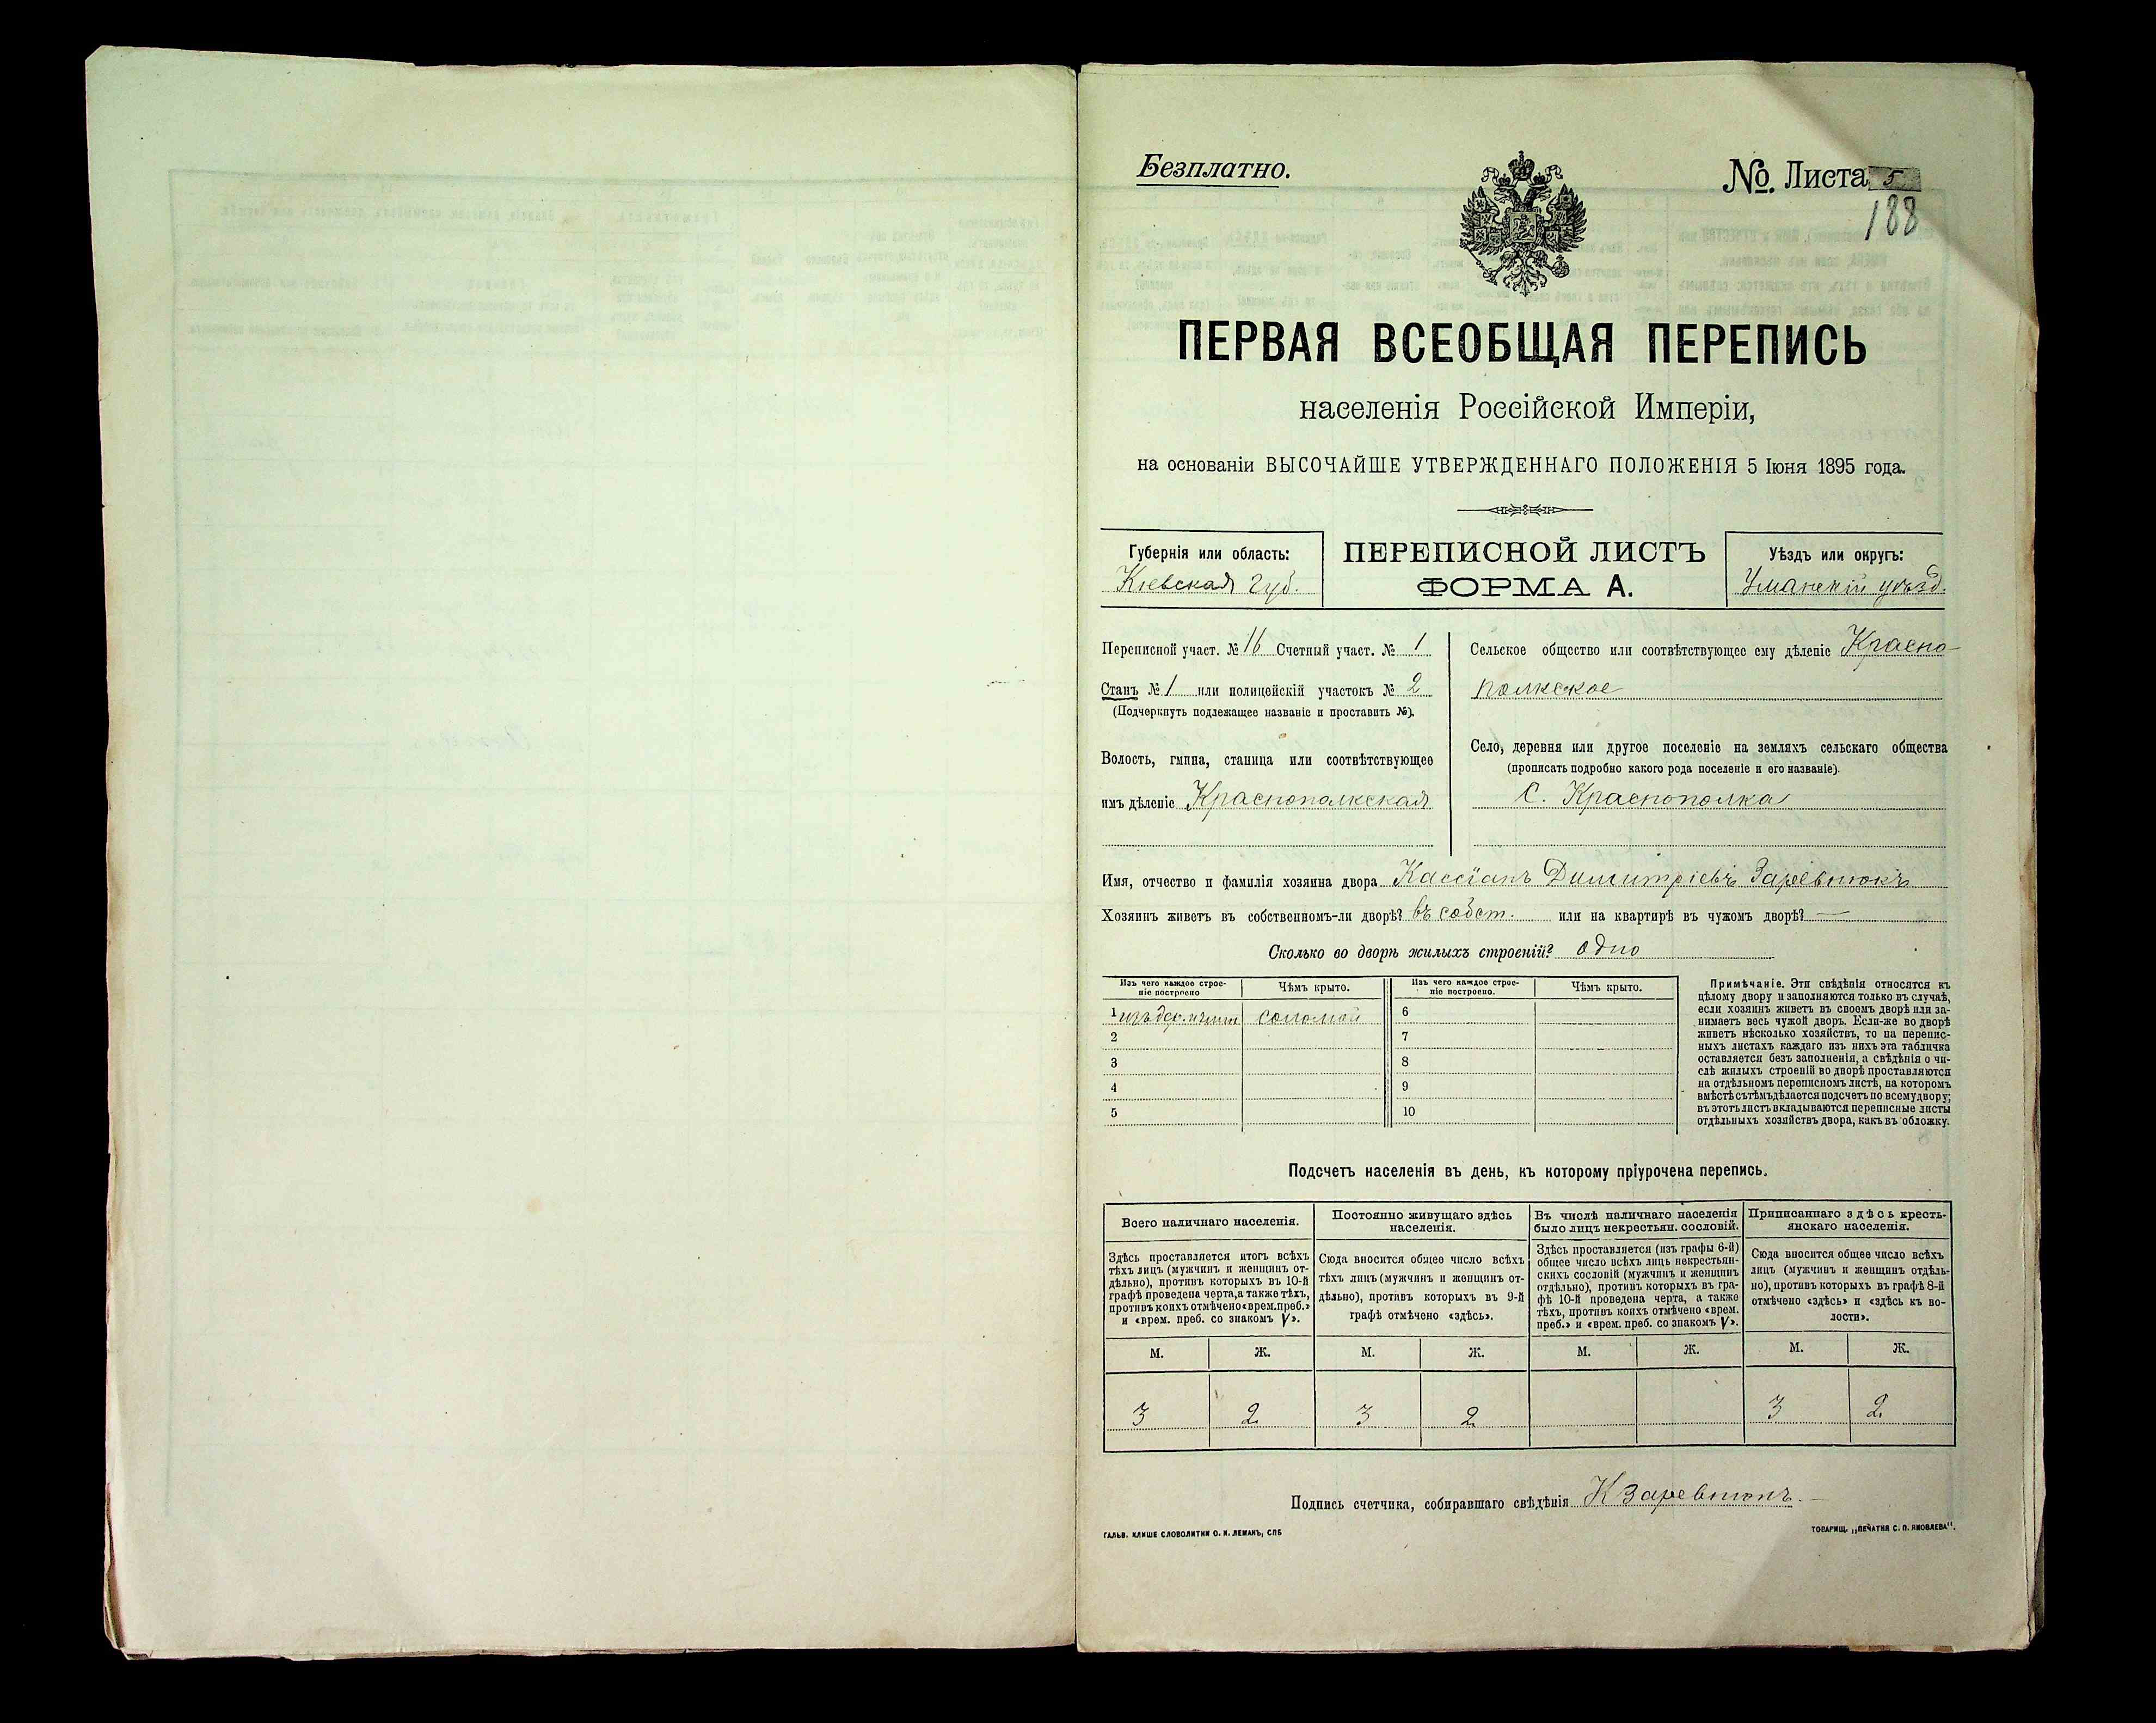 Безплатно.
№. Листа 5
188
ПЕРВАЯ ВСЕОБЩАЯ ПЕРЕПИСЬ
населенія Россійской Имперіи,
на основаніи ВЫСОЧАЙШЕ УТВЕРЖДЕННАГО ПОЛОЖЕНІЯ 5 Іюня 1895 года.
Губернія или область:
Кіевская губ.
ПЕРЕПИСНОЙ ЛИСТЪ
ФОРМА А.
Уѣздъ или округъ:
Уманскій уѣзд.
Переписной участ. № 16 Счетный участ. № 1
Станъ № 1 или полицейскій участокъ № 2
(Подчеркнуть подлежащее названіе и проставить №).
Волость, гмина, станица или соотвѣтствующее
имъ дѣленіе Краснополкская
Сельское общество или соотвѣтствующее ему дѣленіе Красно-
полкское
Село, деревня или другое поселеніе на земляхъ сельскаго общества
(прописать подробно какого рода поселеніе и его названіе).
С. Краснополка
Имя, отчество и фамилія хозяина двора Кассіанъ Димитріевъ Заревнюкъ
Хозяинъ живетъ въ собственномъ-ли дворѣ? въ собст. или на квартирѣ въ чужомъ дворѣ? —
Сколько во дворѣ жилыхъ строеній? одно
Изъ чего каждое строе-
ніе построено
Чѣмъ крыто.
Изъ чего каждое строе-
ніе построено.
Чѣмъ крыто.
1 изъ дер. соломой 6
2 7
3 8
4 9
5 10
Примѣчаніе. Эти свѣдѣнія относятся къ
цѣлому двору и заполняются только въ случаѣ,
если хозяинъ живетъ въ своемъ дворѣ или за-
нимаетъ весь чужой дворъ. Если-же во дворѣ
живетъ нѣсколько хозяйствъ, то на перепис-
ныхъ листахъ каждаго изъ нихъ эта табличка
оставляется безъ заполненія, а свѣдѣнія о чи-
слѣ жилыхъ строеній во дворѣ проставляются
на отдѣльномъ переписномъ листѣ, на которомъ
вмѣстѣ съ тѣмъ дѣлается подсчетъ по всему двору;
въ этотъ листъ вкладываются переписные листы
отдѣльныхъ хозяйствъ двора, какъ въ обложку.
Подсчетъ населенія въ день, къ которому пріурочена перепись.
Всего наличнаго населенія.
Здѣсь проставляется итогъ всѣхъ
тѣхъ лицъ (мужчинъ и женщинъ от-
дѣльно), противъ которыхъ въ 10-й
графѣ проведена черта, а также тѣхъ,
противъ коихъ отмѣчено «врем. преб.»
и «врем. преб. со знакомъ V».
Постоянно живущаго здѣсь
населенія.
Сюда вносится общее число всѣхъ
тѣхъ лицъ (мужчинъ и женщинъ от-
дѣльно), противъ которыхъ въ 9-й
графѣ отмѣчено «здѣсь».
Въ числѣ наличнаго населенія
было лицъ некрестьян. сословій.
Здѣсь проставляется (изъ графы 6-й)
общее число всѣхъ лицъ некрестьян-
скихъ сословій (мужчинъ и женщинъ
отдѣльно), противъ которыхъ въ гра-
фѣ 10-й проведена черта, а также
тѣхъ, противъ коихъ отмѣчено «врем.
преб.» и «врем. преб. со знакомъ V».
Приписаннаго здѣсь кресть-
янскаго населенія.
Сюда вносится общее число всѣхъ
лицъ (мужчинъ и женщинъ отдѣль-
но), противъ которыхъ въ графѣ 8-й
отмѣчено «здѣсь» и «здѣсь къ во-
лости».
М. Ж. М. Ж. М. Ж. М. Ж.
3 2 3 2 3 2
Подпись счетчика, собиравшаго свѣдѣнія К Заревнюкъ.
ГАЛЬВ. КЛИШЕ СЛОВОЛИТНИ О. И. ЛЕМАНЪ, СПБ
ТОВАРИЩ. „ПЕЧАТНЯ С. П. ЯКОВЛЕВА".